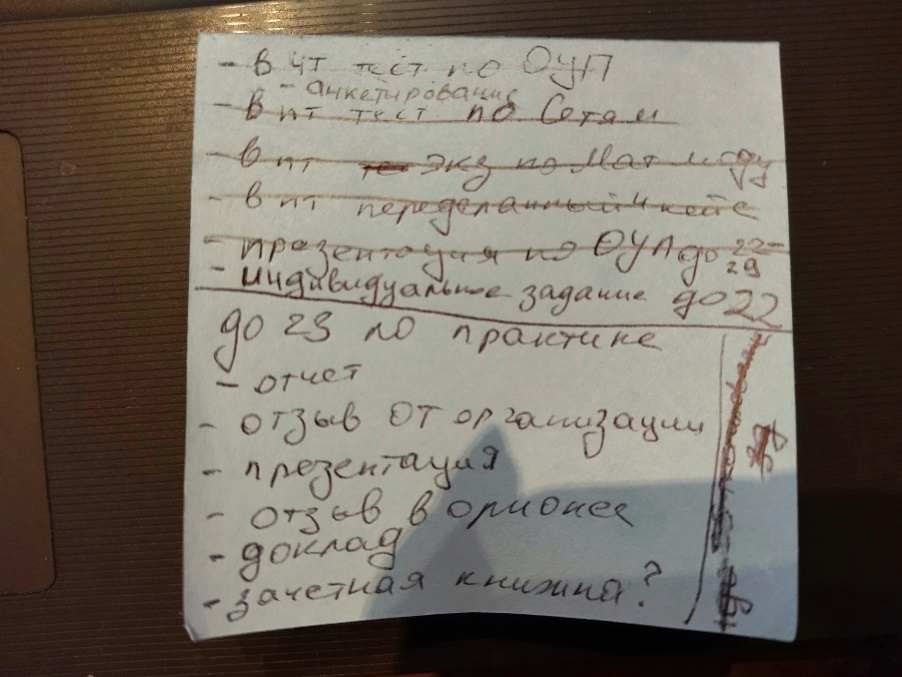 - в чт тест по ОУП
- анкетирование
- в пт тест по Сетям
- в пт экз по Мат моду
- в пт переделанный кейс
- презентация по ОУП до 22-
29
- индивидуальное задание до 22
до 23 по практике
- отчет
- отзыв от организации
- презентация
- отзыв в орионее
- доклад
- зачетная книжка?